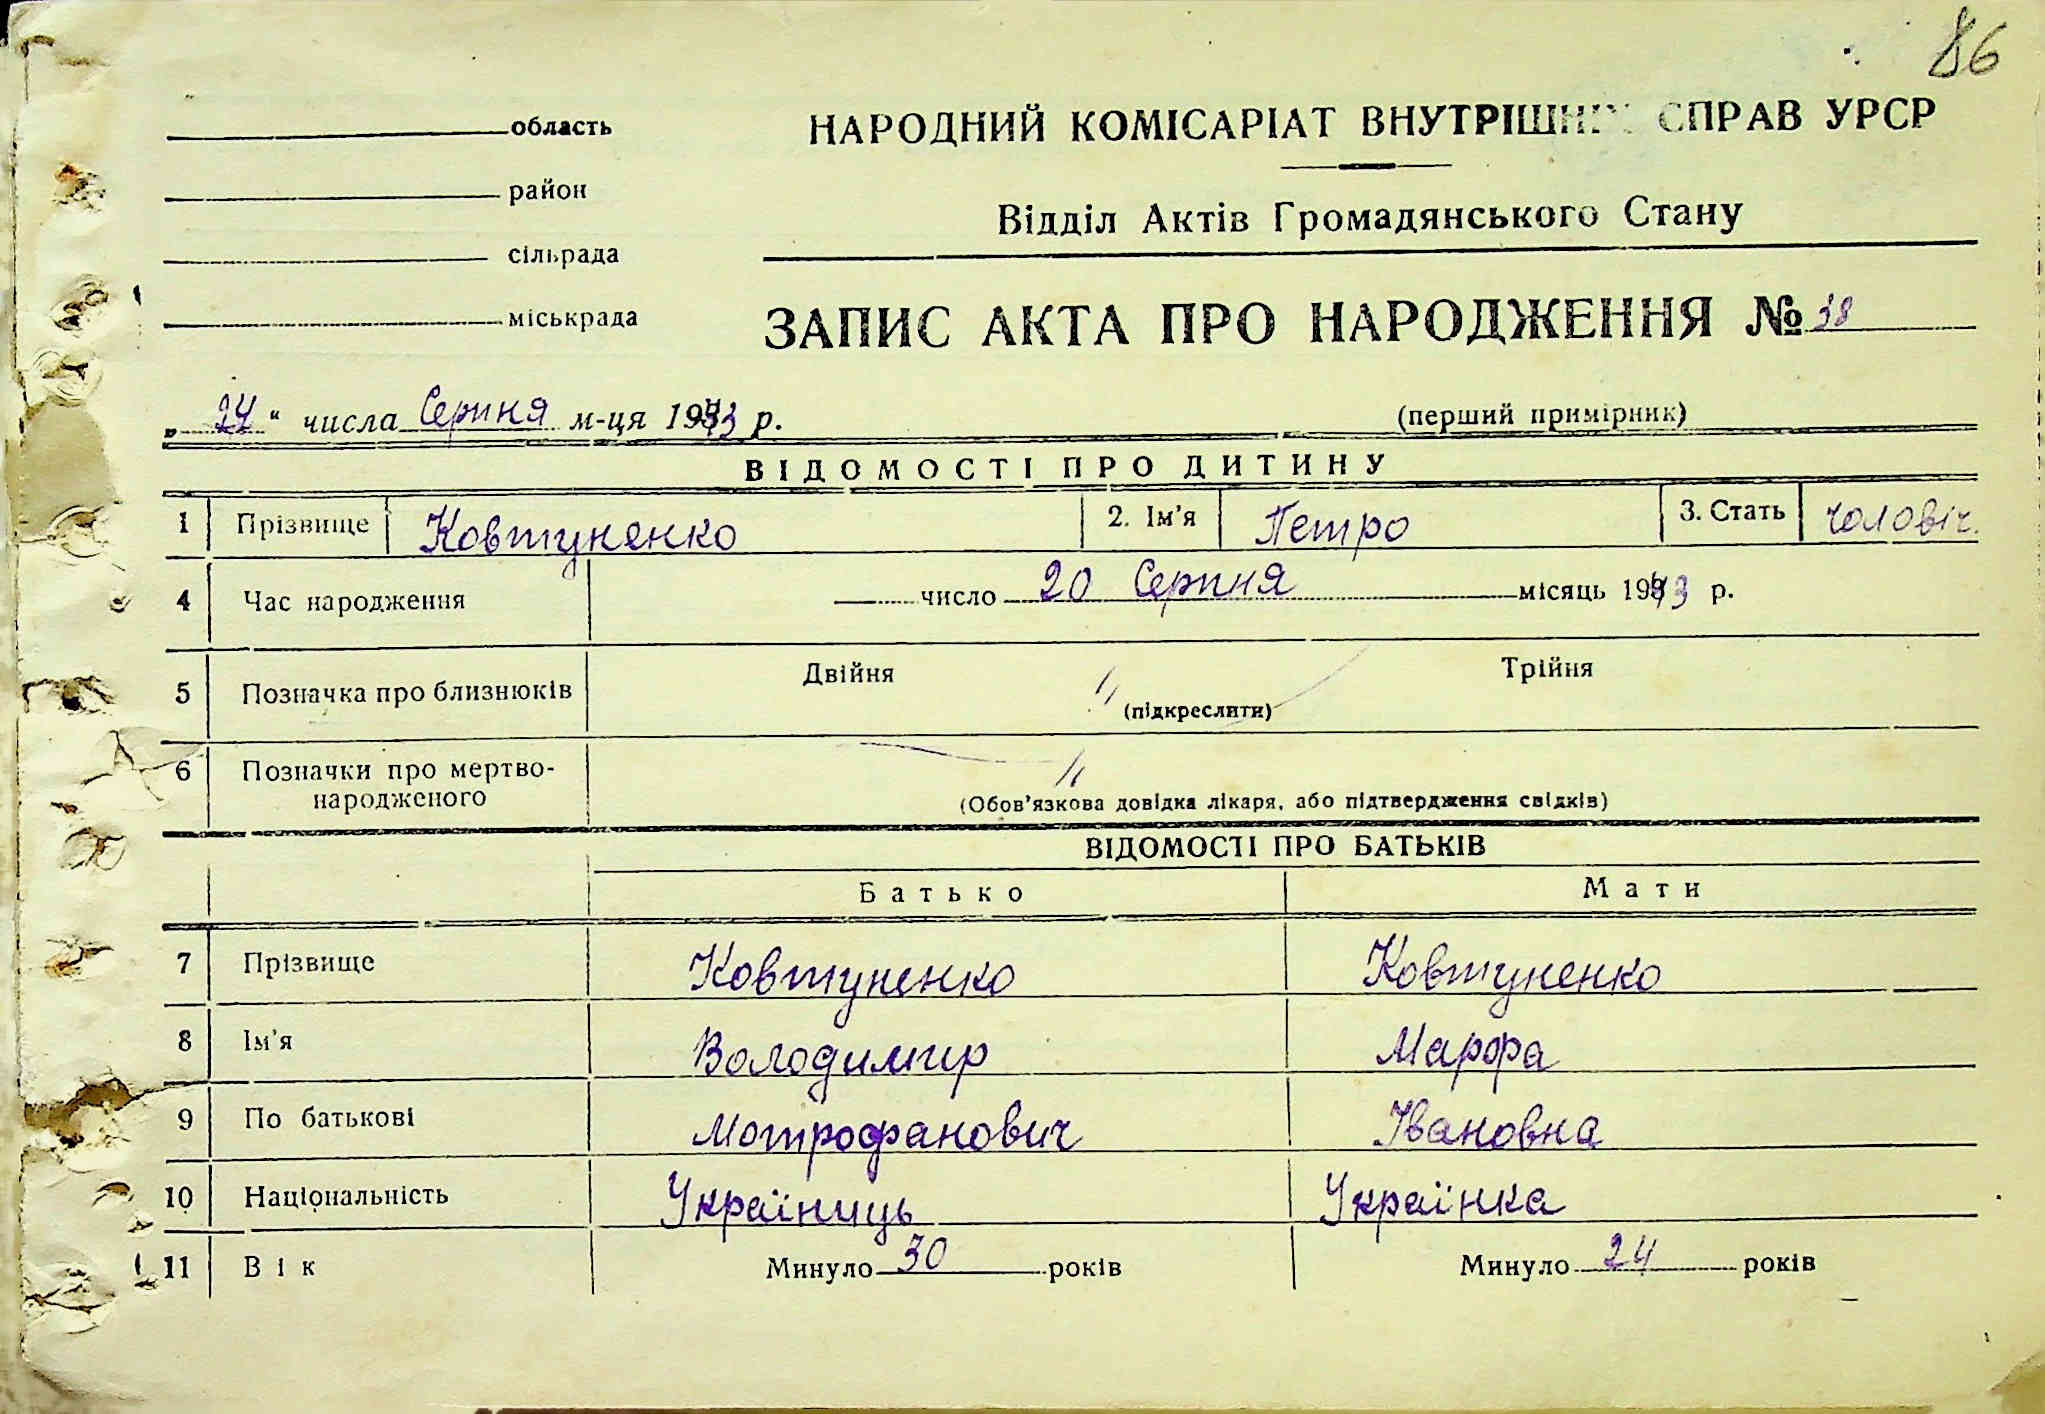 86
область
НАРОДНИЙ КОМІСАРІАТ ВНУТРІШНІХ СПРАВ УРСР
район
Відділ Актів Громадянського Стану
сільрада
міськрада
ЗАПИС АКТА ПРО НАРОДЖЕННЯ № 38
„24“ числа Серпня м-ця 1943 р.
(перший примірник)
ВІДОМОСТІ ПРО ДИТИНУ
1 Прізвище Ковтуненко 2. Ім'я Петро 3. Стать чоловіч.
4 Час народження число 20 Серпня місяць 1943 р.
5 Позначка про близнюків Двійня Трійня
(підкреслити)
6 Позначки про мертво-
народженого
(Обов'язкова довідка лікаря, або підтвердження свідків)
ВІДОМОСТІ ПРО БАТЬКІВ
Батько Мати
7 Прізвище Ковтуненко Ковтуненко
8 Ім'я Володимир Марфа
9 По батькові Мотрофанович Івановна
10 Національність Україниць Українка
11 Вік Минуло 30 років Минуло 24 років